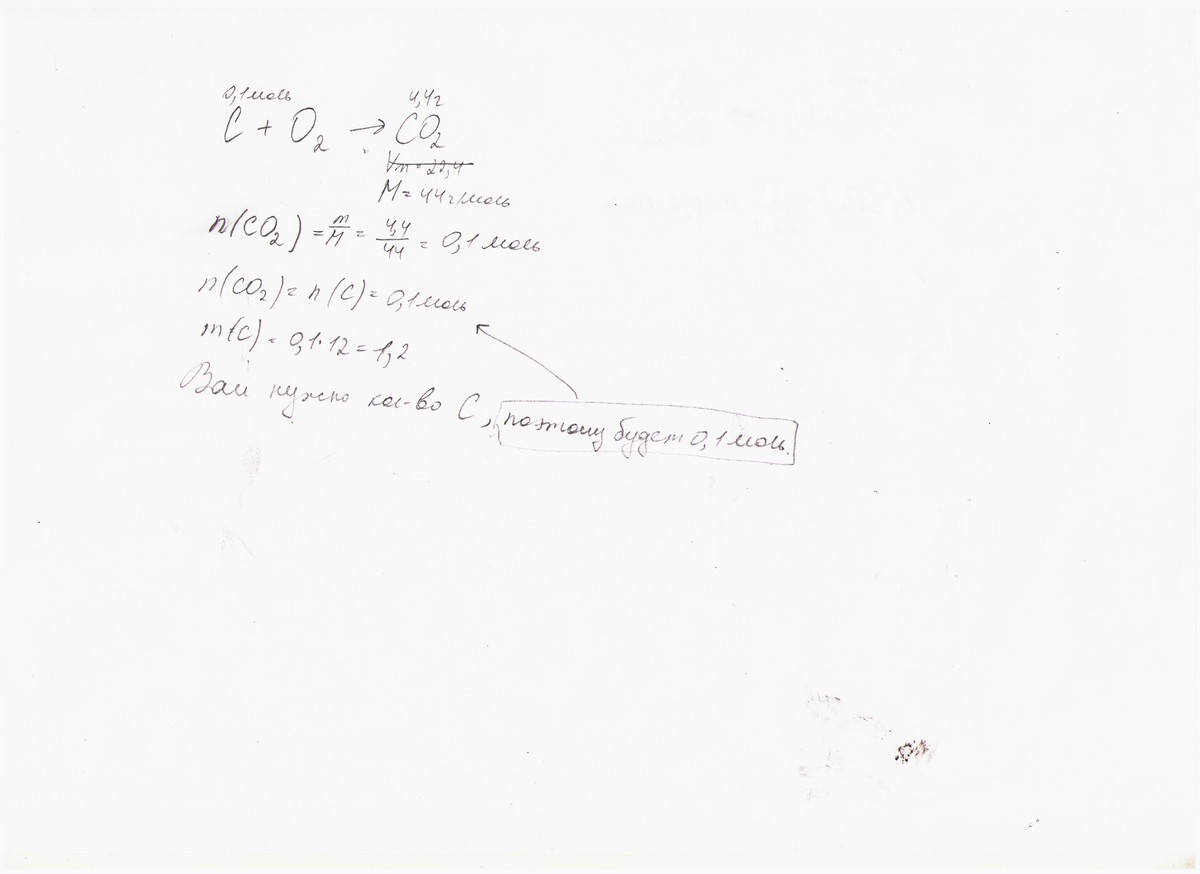 0,1 моль 4,4 г
C + O₂ → CO₂
Vm = 22,4
M = 44 г/моль
n(CO₂) = m/M = 4,4/44 = 0,1 моль
n(CO₂) = n(C) = 0,1 моль
m(C) = 0,1·12 = 1,2
Вам нужно кол-во C, поэтому будет 0,1 моль.